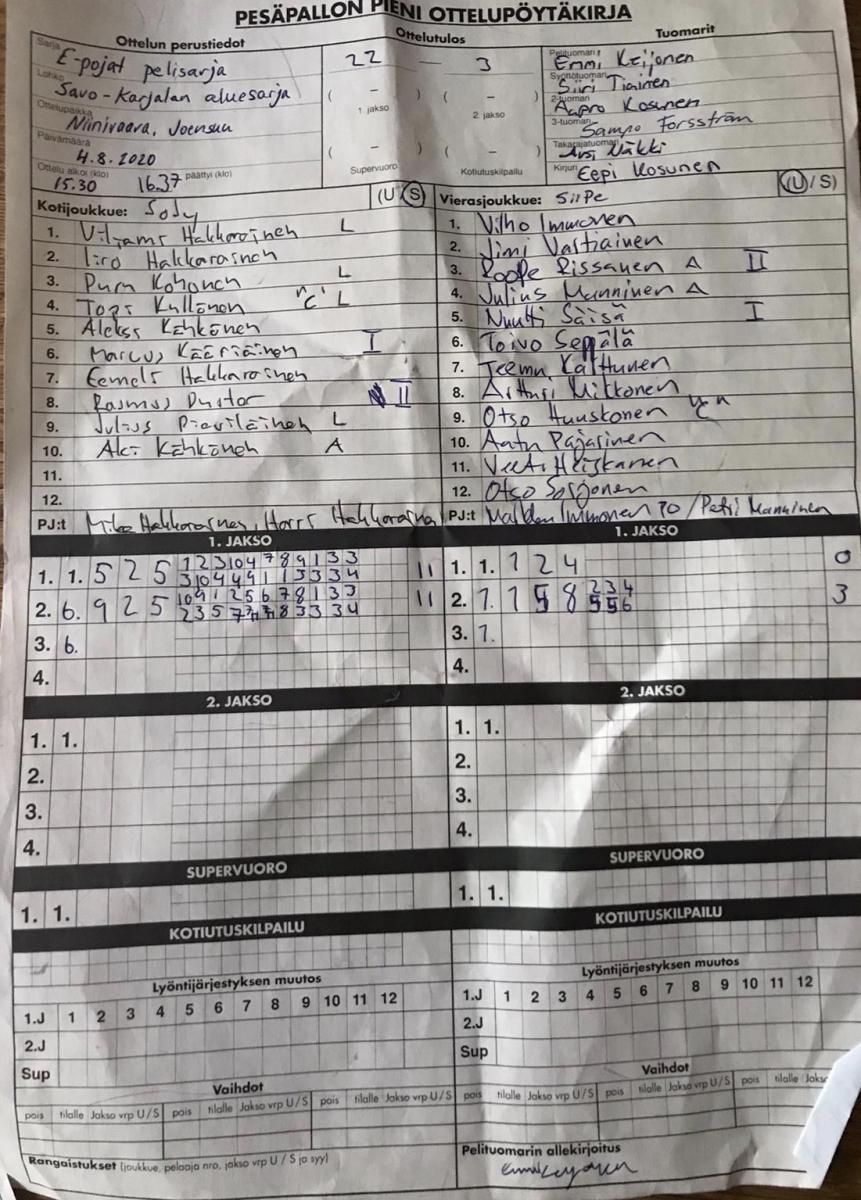 PESÄPALLON PIENI OTTELUPÖYTÄKIRJA
Ottelun perustiedot
Sarja E-pojat pelisarja
Lohko Savo-Karjalan aluesarja
Ottelupaikka Niinivaara, Joensuu
Päivämäärä 4.8.2020
Ottelu alkoi (klo) 15.30 16.37 päättyi (klo)
Ottelutulos
22 — 3
( – ) ( – )
1. jakso 2. jakso
( – ) ( – )
Supervuoro Kotiutuskilpailu
Tuomarit
Pelituomari Emmi Keijonen
Syöttötuomari Siiri Tiainen
2-tuomari Aapro Kosunen
3-tuomari Sampo Forsström
Takarajatuomari Näkki
Kirjuri Eepi Kosunen
Kotijoukkue: SoJy (U/S)
1. Hakkarainen L
2. Iiro Hakkarainen
3. Kohonen L
4. Topi Kullonen "C" L
5. Kähkönen
6. Marcus Kääriäinen I
7. Eemeli Hakkarainen
8. Rasmus II
9. Julius L
10. Aki Kähkönen A
11.
12.
PJ:t Mika Hakkarainen, Harri Hakkarainen
Vierasjoukkue: SiiPe (U/S)
1. Vilho Immonen
2. Jimi Vastiainen
3. Roope Rissanen A II
4. Julius Manninen A
5. Nuutti Säisä I
6. Toivo Seppälä
7. Teemu Kalttunen
8. Artturi Mikkonen
9. Otso Huuskonen "C"
10. Aatu Pajarinen
11. Veeti Heiskanen
12. Otso
PJ:t Immonen / Petri Manninen
1. JAKSO
1. 1. 5 2 5 1 2 3 10 4 7 8 9 1 3 3 11
3 10 4 4 9 1 1 3 3 3 4
2. 6. 9 2 5 10 9 1 2 5 6 7 8 1 3 3 11
2 3 5 7 8 3 3 3 4
3. 6.
4.
1. JAKSO
1. 1. 1 2 4 0
2. 1. 1 5 8 2 3 4 3
5 5 6
3. 1.
4.
2. JAKSO
1. 1.
2.
3.
4.
2. JAKSO
1. 1.
2.
3.
4.
SUPERVUORO
1. 1.
SUPERVUORO
1. 1.
KOTIUTUSKILPAILU
KOTIUTUSKILPAILU
Lyöntijärjestyksen muutos
1.J 1 2 3 4 5 6 7 8 9 10 11 12
2.J
Sup
Lyöntijärjestyksen muutos
1.J 1 2 3 4 5 6 7 8 9 10 11 12
2.J
Sup
Vaihdot
pois tilalle Jakso vrp U/S pois tilalle Jakso vrp U/S pois tilalle Jakso vrp U/S
Vaihdot
pois tilalle Jakso vrp U/S pois tilalle Jakso vrp U/S pois tilalle Jakso
Rangaistukset (joukkue, pelaaja nro, jakso vrp U / S ja syy)
Pelituomarin allekirjoitus